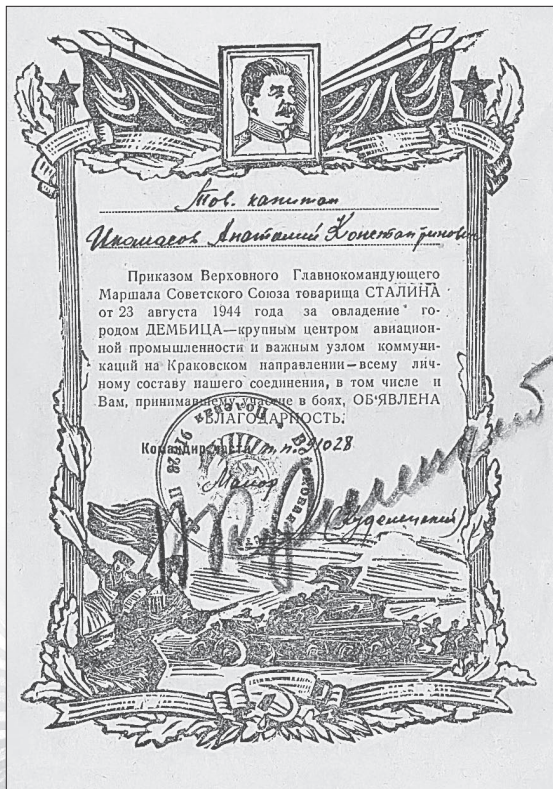 Тов. капитан
Анатолий Константинович
Приказом Верховного Главнокомандующего
Маршала Советского Союза товарища СТАЛИНА
от 23 августа 1944 года за овладение го-
родом ДЕМБИЦА—крупным центром авиацион-
ной промышленности и важным узлом коммуни-
каций на Краковском направлении—всему лич-
ному составу нашего соединения, в том числе и
Вам, принимавшему участие в боях, ОБ'ЯВЛЕНА
БЛАГОДАРНОСТЬ.
Командир части п.п. 91028
Майор